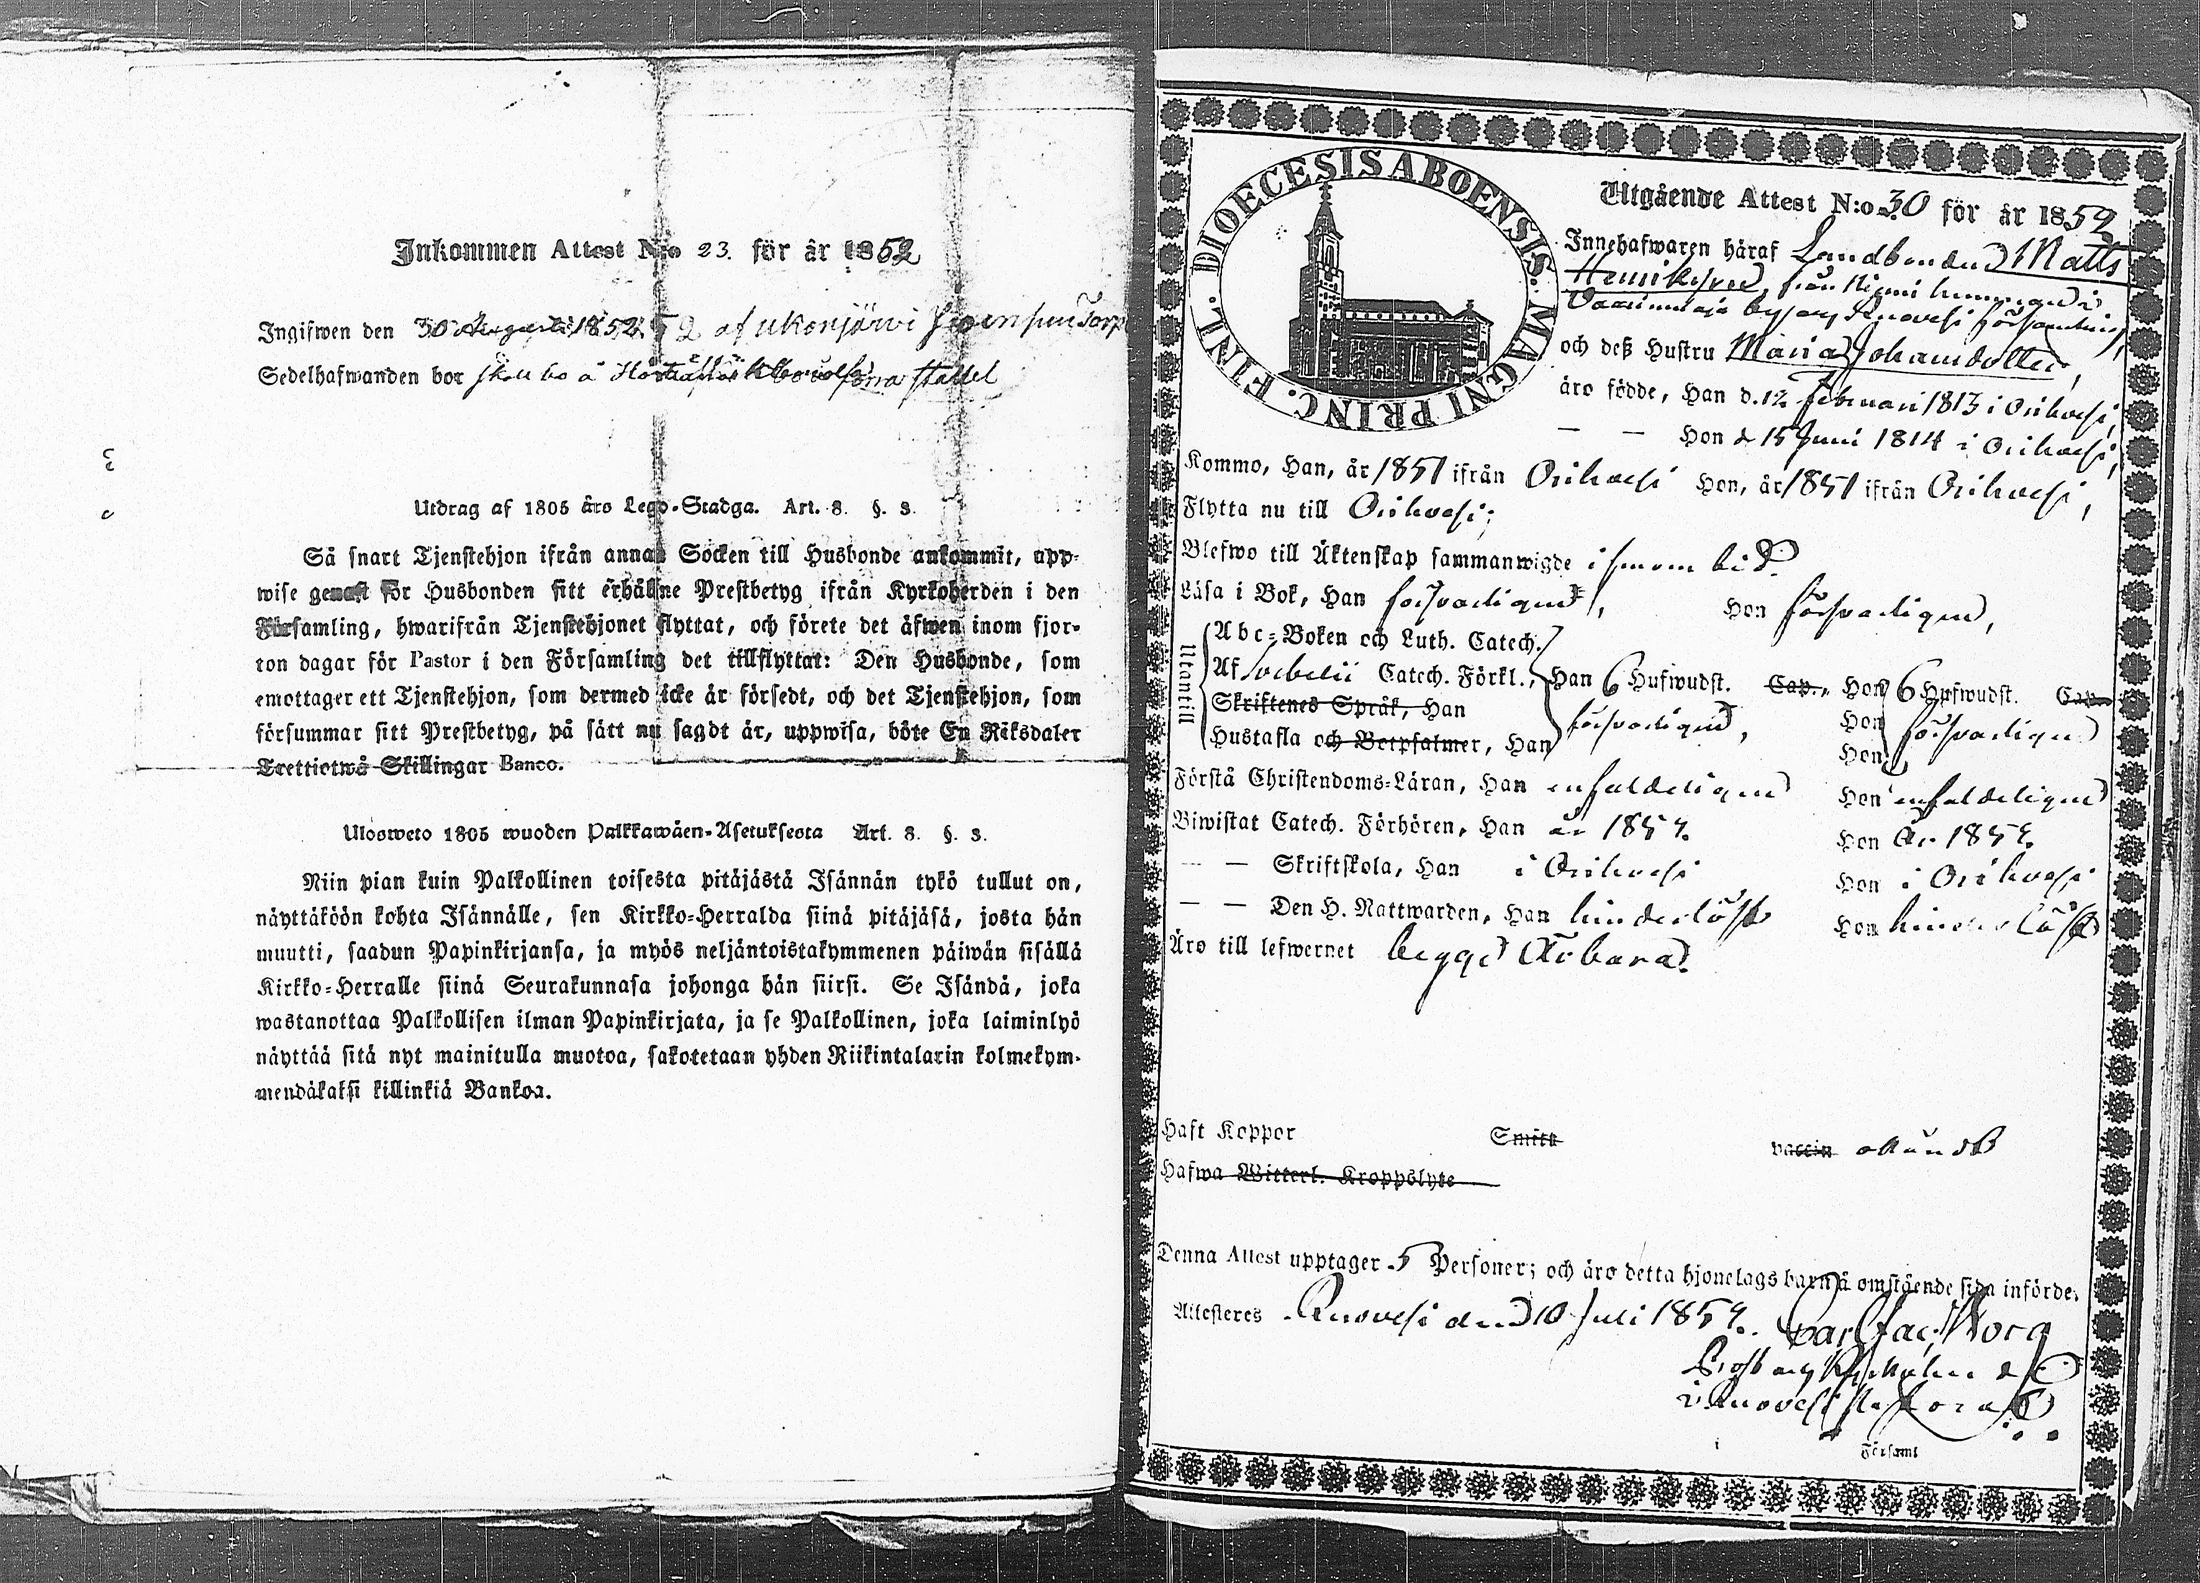 Inkommen Attest N:o 23. för år 1852
Ingifwen den 30 Augusti 1852 af Ukonjärvi Torp
Sedelhafwanden bor skall bo å
Utdrag af 1805 års Lego-Stadga. Art. 8. §. 3.
Så snart Tjenstehjon ifrån annan Socken till Husbonde ankommit, upp-
wise genast för Husbonden sitt erhållne Prestbetyg ifrån Kyrkoherden i den
Församling, hwarifrån Tjenstehjonet flyttat, och förete det äfwen inom fjor-
ton dagar för Pastor i den Församling det tillflyttat: Den Husbonde, som
emottager ett Tjenstehjon, som dermed icke är försedt, och det Tjenstehjon, som
försummar sitt Prestbetyg, på sätt nu sagdt är, uppwisa, böte En Riksdaler
Trettiotwå Skillingar Banco.
Ulosweto 1805 wuoden Palkkawäen-Asetuksesta Art. 8. §. 3.
Niin pian kuin Palkollinen toisesta pitäjästä Isännän tykö tullut on,
näyttäköön kohta Isännälle, sen Kirkko-Herralda siinä pitäjäsä, josta hän
muutti, saadun Papinkirjansa, ja myös neljäntoistakymmenen päiwän sisällä
Kirkko-Herralle siinä Seurakunnasa johonga hän siirsi. Se Isändä, joka
wastanottaa Palkollisen ilman Papinkirjata, ja se Palkollinen, joka laiminlyö
näyttää sitä nyt mainitulla muotoa, sakotetaan yhden Riikintalarin kolmekym-
mendäkaksi killinkiä Bankoa.
DIOECESIS ABOENSIS. MAGNI PRINC. FINL.
Utgående Attest N:o 30 för år 1852
Innehafwaren häraf Landbonden Matts
Henriksson, från Niemi hemman i
by och Ruovesi församling,
och deß Hustru Maria Johansdotter,
äro födde, Han d. 12 Februari 1813 i Orihvesi,
— — Hon d 15 Juni 1814 i Orihvesi,
Kommo, Han, år 1851 ifrån Orihvesi Hon, år 1851 ifrån Orihvesi,
Flytta nu till Orihvesi;
Blefwo till Äktenskap sammanwigde i sinom tid.
Läsa i Bok, Han försvarligen, Hon försvarligen,
Utantill
Abc-Boken och Luth. Catech.
Af Svebelii Catech. Förkl., Han 6 Hufwudst. Cap., Hon 6 Hufwudst. Cap.
Skriftenes Språk, Han försvarligen, Hon försvarligen
Hustafla och Botpsalmer, Han Hon
Förstå Christendoms-Läran, Han enfaldeligen Hon enfaldeligen
Biwistat Catech. Förhören, Han år 1852. Hon År 1852.
— — Skriftskola, Han i Orihvesi Hon i Orihvesi
— — Den H. Nattwarden, Han hinderlöst Hon hinderlöst
Äro till lefwernet begge Ärbara.
Haft Koppor Smitt vaccin okändt
Hafwa Witterl. Kroppslyte
Denna Attest upptager 5 Personer; och äro detta hjonelags barn å omstående sida införde.
Attesteres Ruovesi den 10 Juli 1852. Carl Jac. Borg
i Ruovesi Pastorat.
Församl